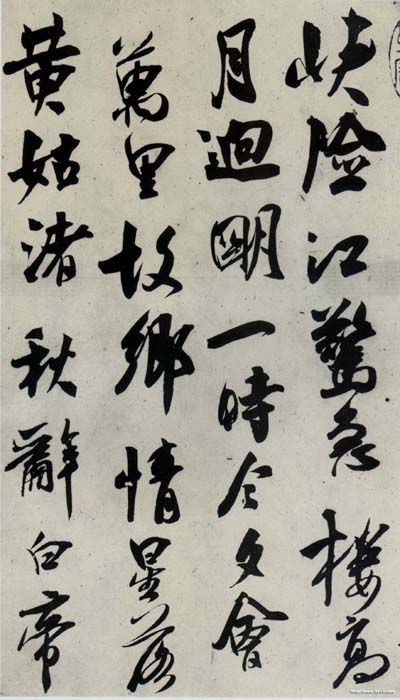 峡險江驚急樓高
月迥明一時今夕會
萬里故鄉情星落
黄姑渚秋辭白帝